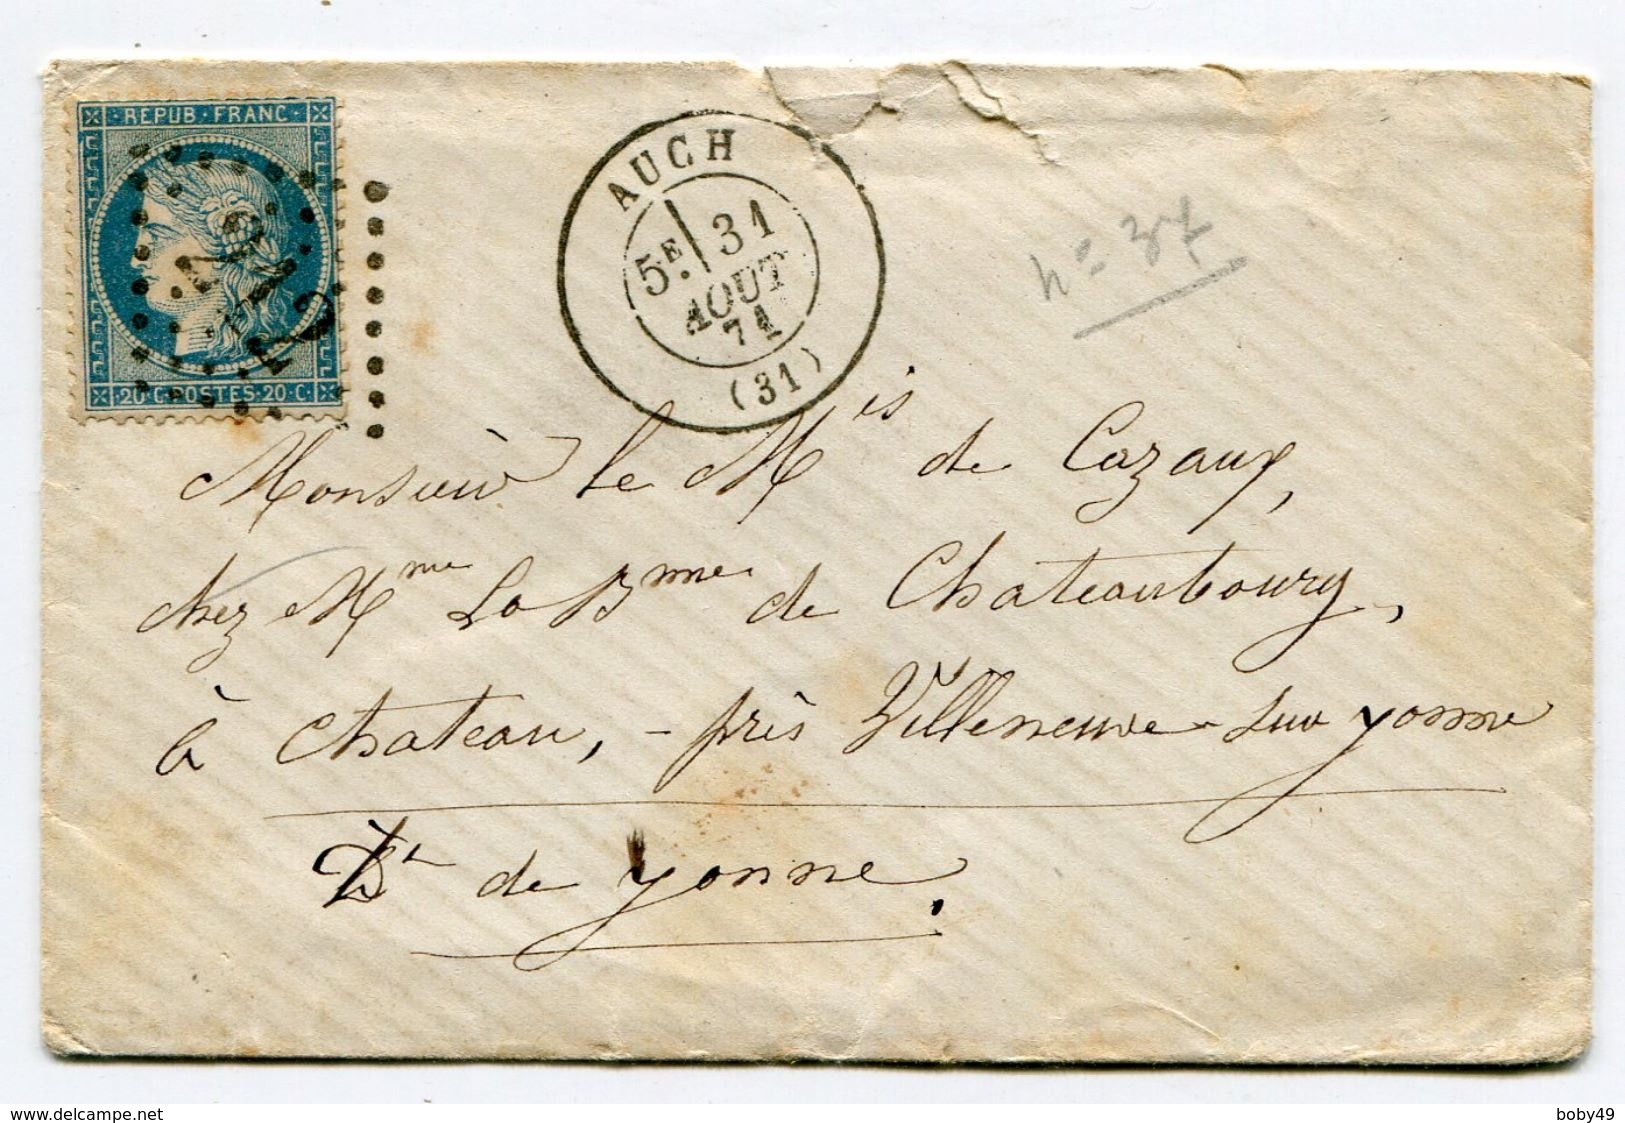 REPUB · FRANC ·
· 20 · C · POSTES · 20 · C ·
AUCH
5E. 31
AOUT
71
(31)
n° 37
Monsieur le Mis de Cazaux,
chez Mme La Bnne de Chateaubourg,
à Chateau, - près Villeneuve - sur yonne
Dt de yonne.
www.delcampe.net
boby49